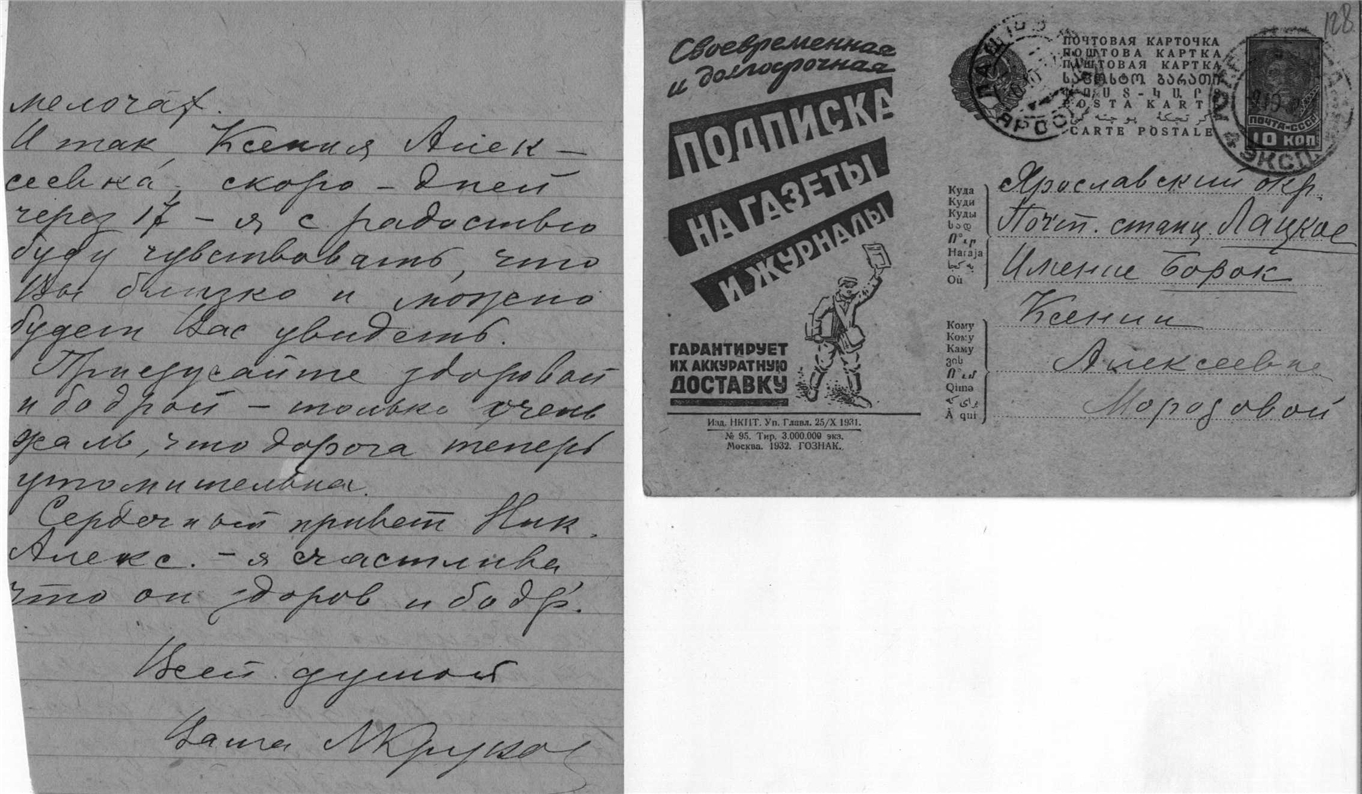 мелочах.
И так, Ксения Алек-
сеевна, скоро - дней
через 17 - я с радостью
буду чувствовать, что
Вы близко и можно
будет Вас увидеть.
Приезжайте здоровой
и бодрой - только очень
жаль, что дорога теперь
утомительна.
Сердечный привет Ник.
Алекс. - я счастлива
что он здоров и бодр.
Всей душой
Ваша
128
Своевременная
и долгосрочная
ПОДПИСКА
НА ГАЗЕТЫ
И ЖУРНАЛЫ
ГАРАНТИРУЕТ
ИХ АККУРАТНУЮ
ДОСТАВКУ
Изд. НКПТ. Уп. Главл. 25/X 1931.
№ 95. Тир. 3.000.000 экз.
Москва. 1932. ГОЗНАК.
ПОЧТОВАЯ КАРТОЧКА
ПОШТОВА КАРТКА
ПАШТОВАЯ КАРТКА
POSTA KART
CARTE POSTALE
ПОЧТА-СССР
10 КОП
ЭКСП
Куда
Куди
Куды
Haraja
Où
Ярославский окр.
Почт. станц. Лацкое
Имение Борок
Кому
Кому
Каму
Qimə
À qui
Ксении
Алексеевне
Морозовой